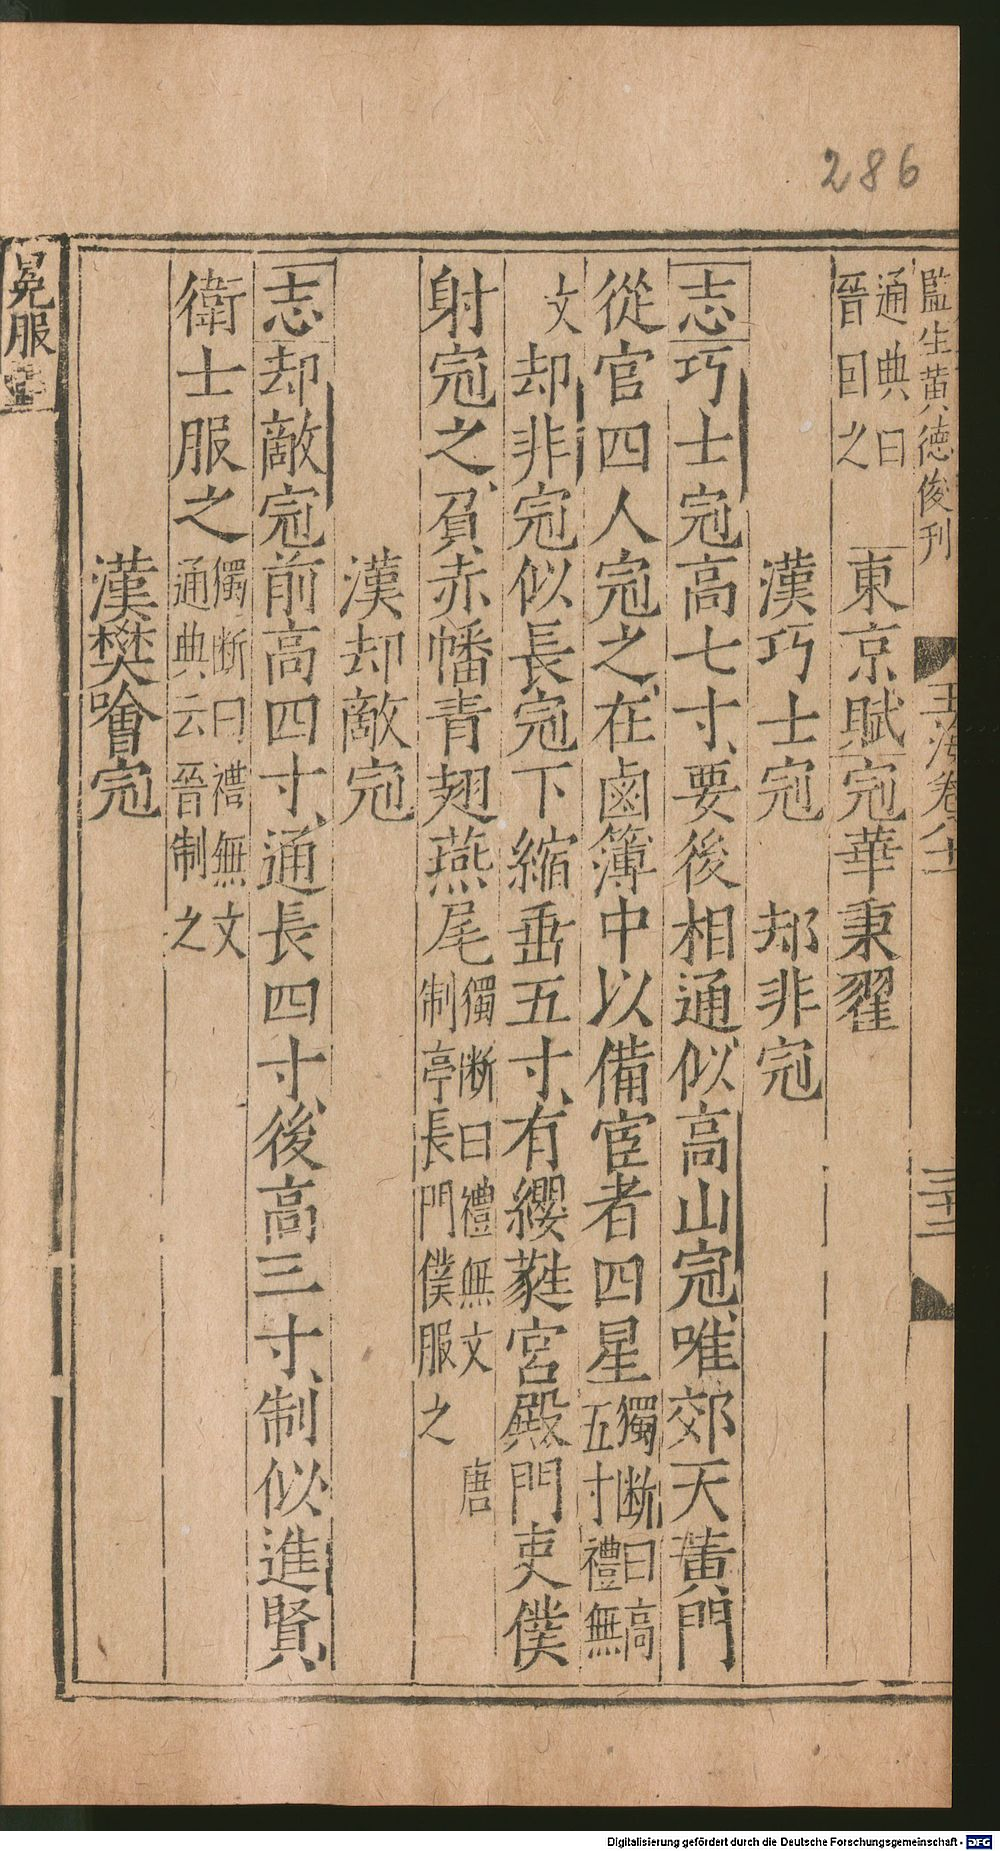 286
監生黃德俊刊
玉海卷八十二
三十二
通典曰
晉因之
東京賦冠華秉翟
漢巧士冠 却非冠
志巧士冠高七寸、要後相通似高山冠、唯郊天黃門
從官四人冠之、在鹵簿中以備宦者四星
獨斷曰高
五寸禮無
文
却非冠似長冠下縮垂五寸、有纓蕤宮殿門吏僕
射冠之、負赤幡青翅燕尾
獨斷曰禮無文 唐
制亭長門僕服之
漢却敵冠
志却敵冠前高四寸、通長四寸、後高三寸、制似進賢、
衛士服之
獨斷曰禮無文
通典云晉制之
漢樊噲冠
冕服
Digitalisierung gefördert durch die Deutsche Forschungsgemeinschaft - DFG